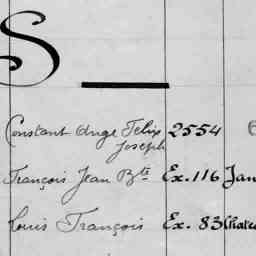 S
Constant Ange Felix 2554
Joseph
François Jean Bte Ex. 116 Jan
Louis François Ex. 83